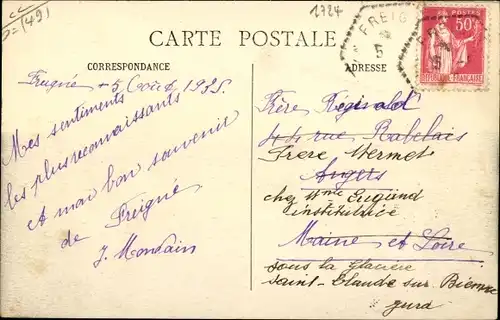 CC
D=(49)
1724
FREIG
5
50c
POSTES
REPUBLIQUE FRANÇAISE
CARTE POSTALE
CORRESPONDANCE
ADRESSE
Freigné 5 Août 1935
Mes sentiments
les plus reconnaissants
et mon bon souvenir
de Freigné
J. Mondain
Frère Réginald
44 rue Rabelais
Frere Mermet
Angers
chez Mme Eugund
institutrice
Maine et Loire
sous la Glacière
Saint-Claude sur Bienne
Jura